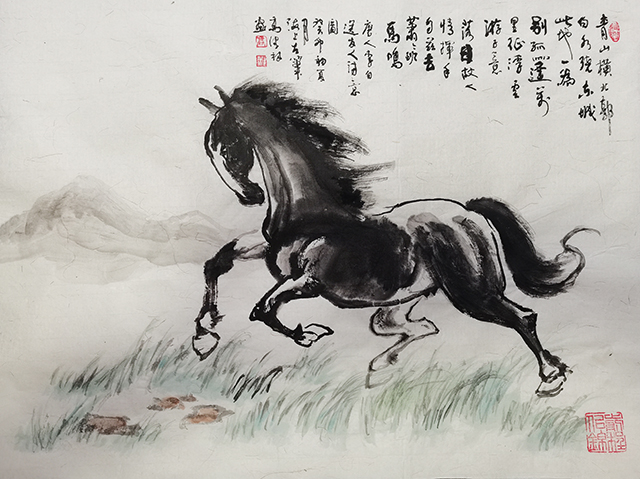 青山横北郭
白水绕东城
此地一为
别孤蓬万
里征浮云
游子意
落日故人
情挥手
自兹去
萧萧班
马鸣
唐人李白
送友人诗意
图
癸卯初夏
月
海上
画